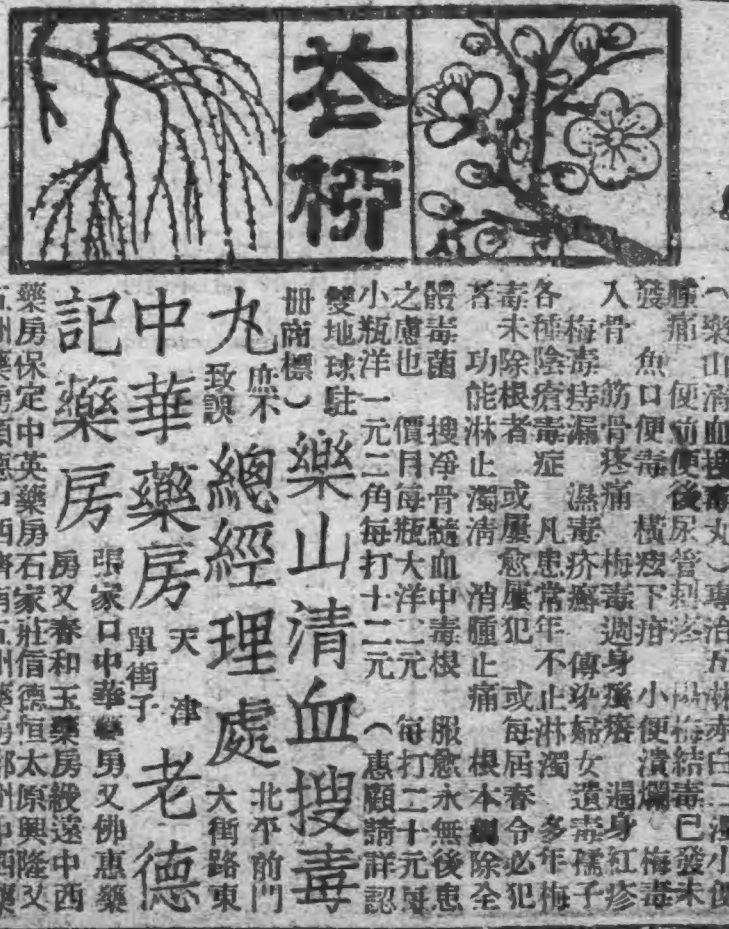 花柳
（樂山清血搜毒丸）專治五淋赤白二濁小便
腫痛　便前便後尿管刺疼　楊梅結毒已發未
發　魚口便毒　橫痃下疳　小便潰爛　梅毒
入骨　筋骨疼痛　梅毒週身癢　遍身紅疹
梅毒痔漏　濕毒疥癬　傳染婦女遺毒孺子
各種陰瘡毒症　凡患常年不止淋濁　多年梅
毒未除根者　或屢愈屢犯　或每屆春令必犯
者　功能淋止濁清　消腫止痛　根本剷除全
體毒菌　搜凈骨髓血中毒根　服愈永無後患
之慮也　價目每瓶大洋二元　每打二十元每
小瓶洋一元二角每打十二元　（惠顧請詳認
雙地球駐
册商標）
樂山清血搜毒
丸
庶不
致誤
總經理處
北平前門
大街路東
中華藥房
天津
單街子
老德
記藥房
張家口中華藥房又佛惠藥
房又春和玉藥房綏遠中西
藥房保定中英藥房石家莊信德恒太原興隆又
五州藥房順德中西濟南五州藥房鄭州中西藥